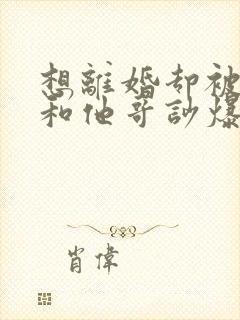 想離婚却被
和他哥訬爆
肖偉